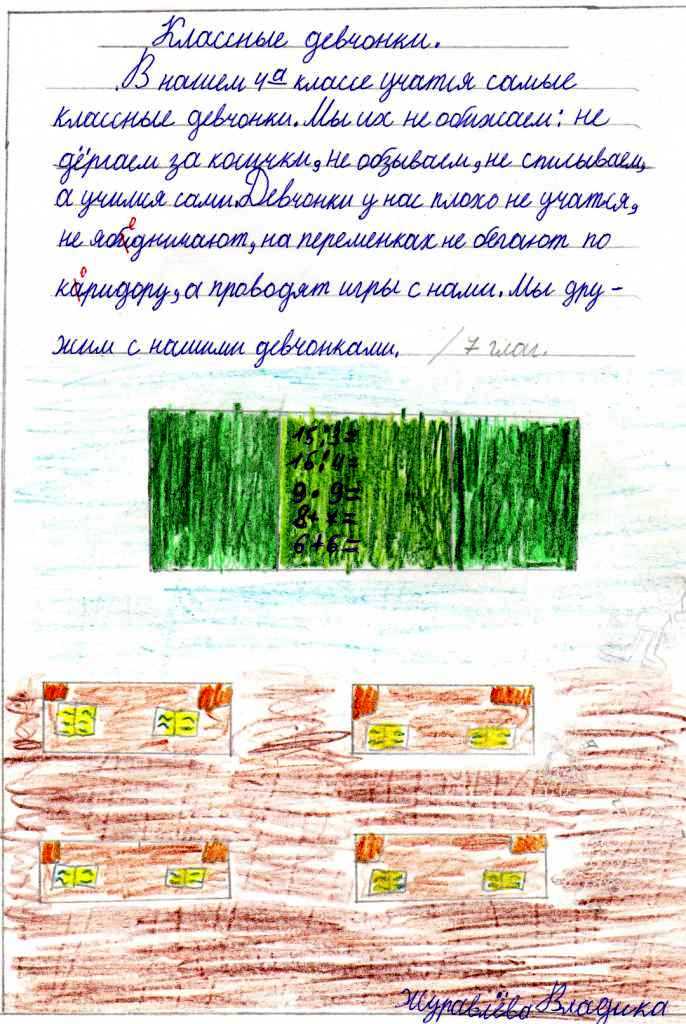 Классные девчонки.
В нашем 4а классе учатся самые
классные девчонки. Мы их не обижаем: не
дёргаем за косички, не обзываем, не списываем,
а учимся сами. Девчонки у нас плохо не учатся,
не ябеднича­ют, на переменках не бегают по
коридору, а проводят игры с нами. Мы дру-
жим с нашими девчонками. / 7 глаг.
15:3=
16:4=
9·9=
6+6=
Журавлёва Владика